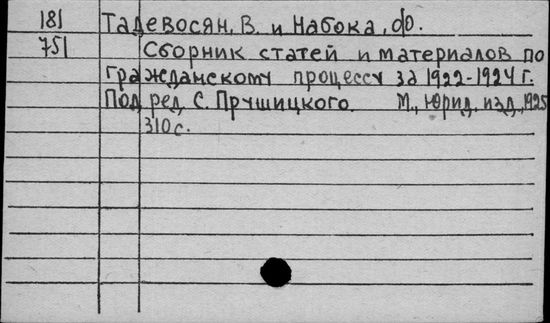 181 Тадевосян, В. и Набока, Ф.
751 Сборник статей и материалов по
гражданскому процессу за 1922-1924 г.
Под ред. С. Прушицкого. М., Юрид. изд., 1925
310 с.